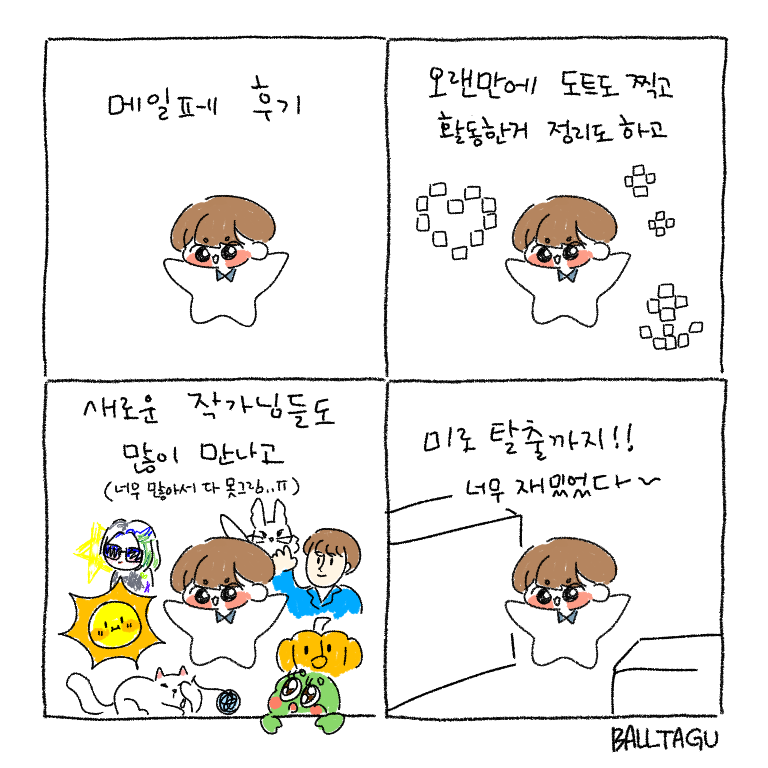 메일프레 후기
오랜만에 도트도 찍고
활동한거 정리도 하고
새로운 작가님들도
많이 만나고
(너무 많아서 다 못그림..ㅠ)
미로 탈출까지!!
너무 재밌었다~
BALLTAGU